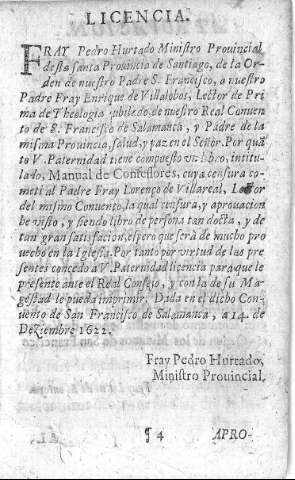 LICENCIA.
FRAY Pedro Hurtado Ministro Prouincial
desta santa Prouincia de Santiago, de la Or-
den de nuestro Padre S. Francisco, a nuestro
Padre Fray Enrique de Villalobos, Lector de Pri
ma de Theologia jubilado de nuestro Real Conuen
to de S. Francisco de Salamanca, y Padre de la
misma Prouincia, salud, y paz en el Señor. Por quã
to V. Paternidad tiene compuesto vn libro, intitu-
lado, Manual de Confessores, cuya censura co-
meti al Padre Fray Lorenço de Villareal, Lector
del mismo Conuento, la qual censura, y aprouacion
he visto, y siendo libro de persona tan docta, y de
tan gran satisfacion, espero que serà de mucho pro
uecho en la Iglesia. Por tanto por virtud de las pre
sentes concedo a V. Paternidad licencia para que le
presente ante el Real Consejo, y con la de su Ma-
gestad le pueda imprimir. Dada en el dicho Con-
uento de San Francisco de Salamanca, a 14. de
Deziembre 1622.
Fray Pedro Hurtado,
Ministro Prouincial.
¶ 4 APRO-